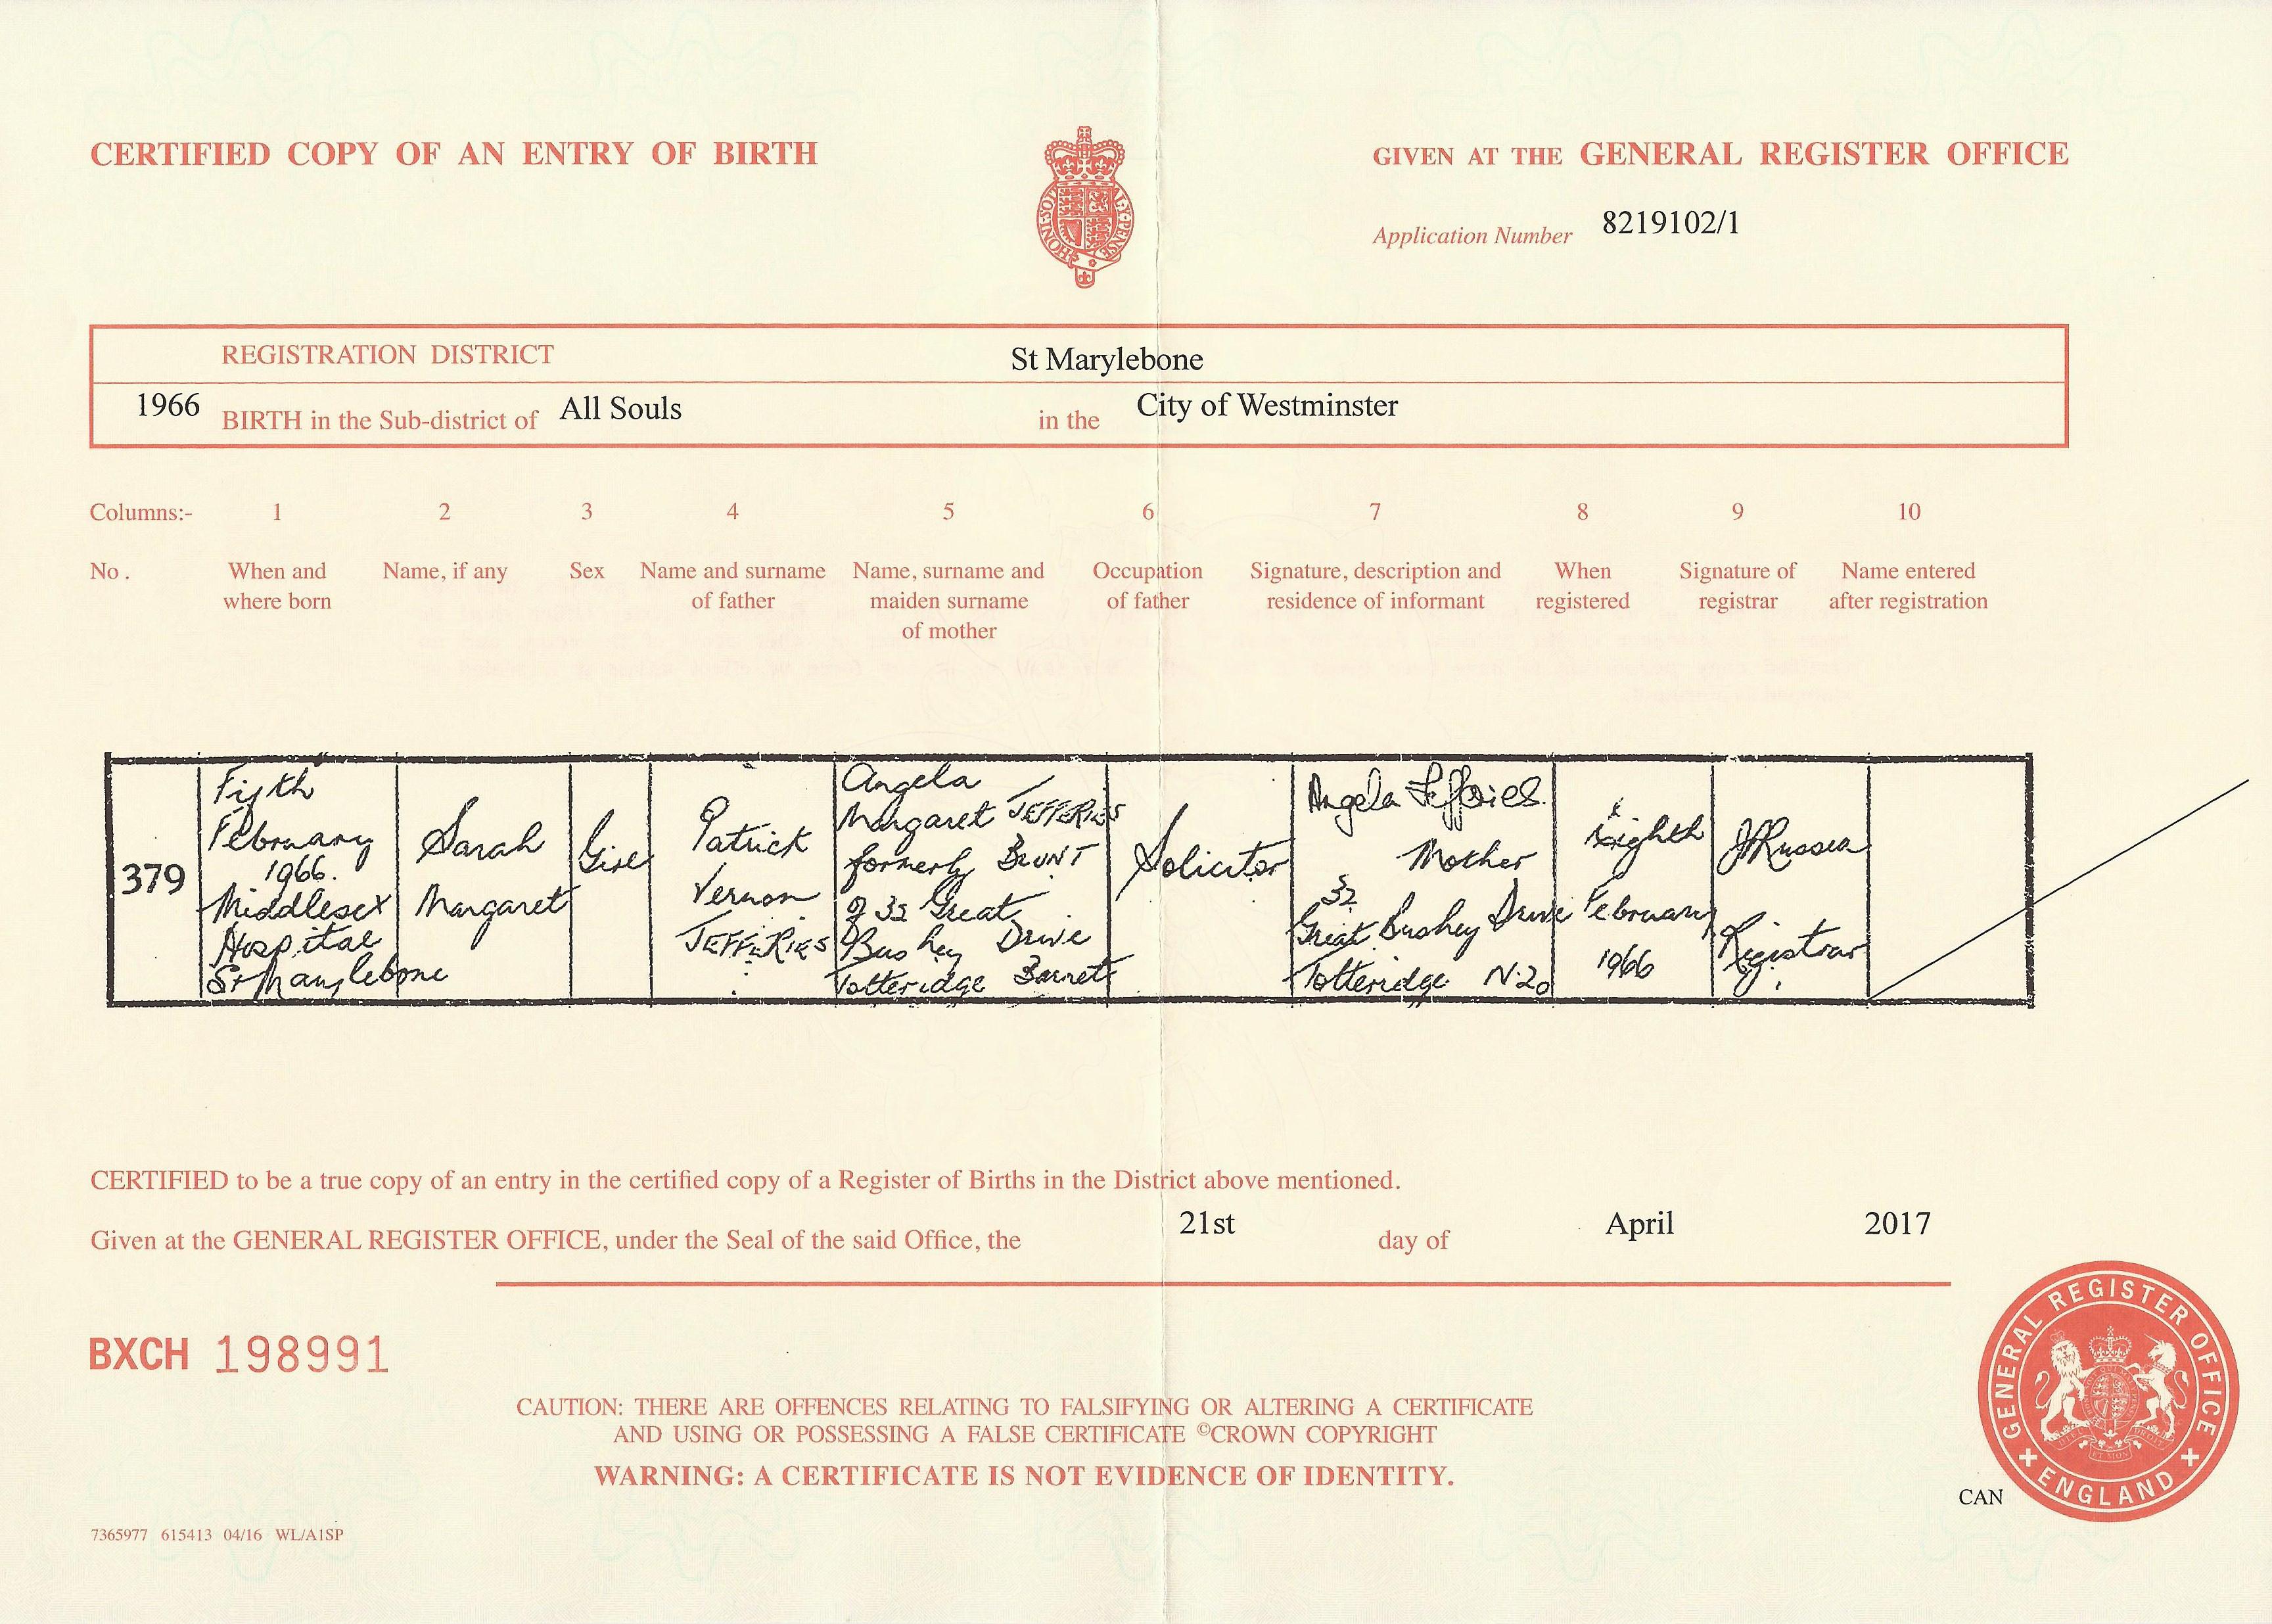 CERTIFIED COPY OF AN ENTRY OF BIRTH
GIVEN AT THE GENERAL REGISTER OFFICE
Application Number 8219102/1
REGISTRATION DISTRICT St Marylebone
1966 BIRTH in the Sub-district of All Souls in the City of Westminster
Columns:- 1 2 3 4 5 6 7 8 9 10
No. When and where born
Name, if any
Sex
Name and surname of father
Name, surname and maiden surname of mother
Occupation of father
Signature, description and residence of informant
When registered
Signature of registrar
Name entered after registration
379
Fifth
February
1966.
Middlesex
Hospital
St Marylebone
Sarah
Margaret
Girl
Patrick
Vernon
JEFFERIES
Angela
Margaret JEFFERIES
formerly BLUNT
of 32 Great
Bushey Drive
Totteridge Barnet
Solicitor
Angela Jefferies.
Mother
32
Great Bushey Drive
Totteridge N.20
Eighth
February
1966
Registrar
CERTIFIED to be a true copy of an entry in the certified copy of a Register of Births in the District above mentioned.
Given at the GENERAL REGISTER OFFICE, under the Seal of the said Office, the 21st day of April 2017
BXCH 198991
CAUTION: THERE ARE OFFENCES RELATING TO FALSIFYING OR ALTERING A CERTIFICATE
AND USING OR POSSESSING A FALSE CERTIFICATE ©CROWN COPYRIGHT
WARNING: A CERTIFICATE IS NOT EVIDENCE OF IDENTITY.
GENERAL REGISTER OFFICE
ENGLAND
CAN
7365977 615413 04/16 WL/A1SP